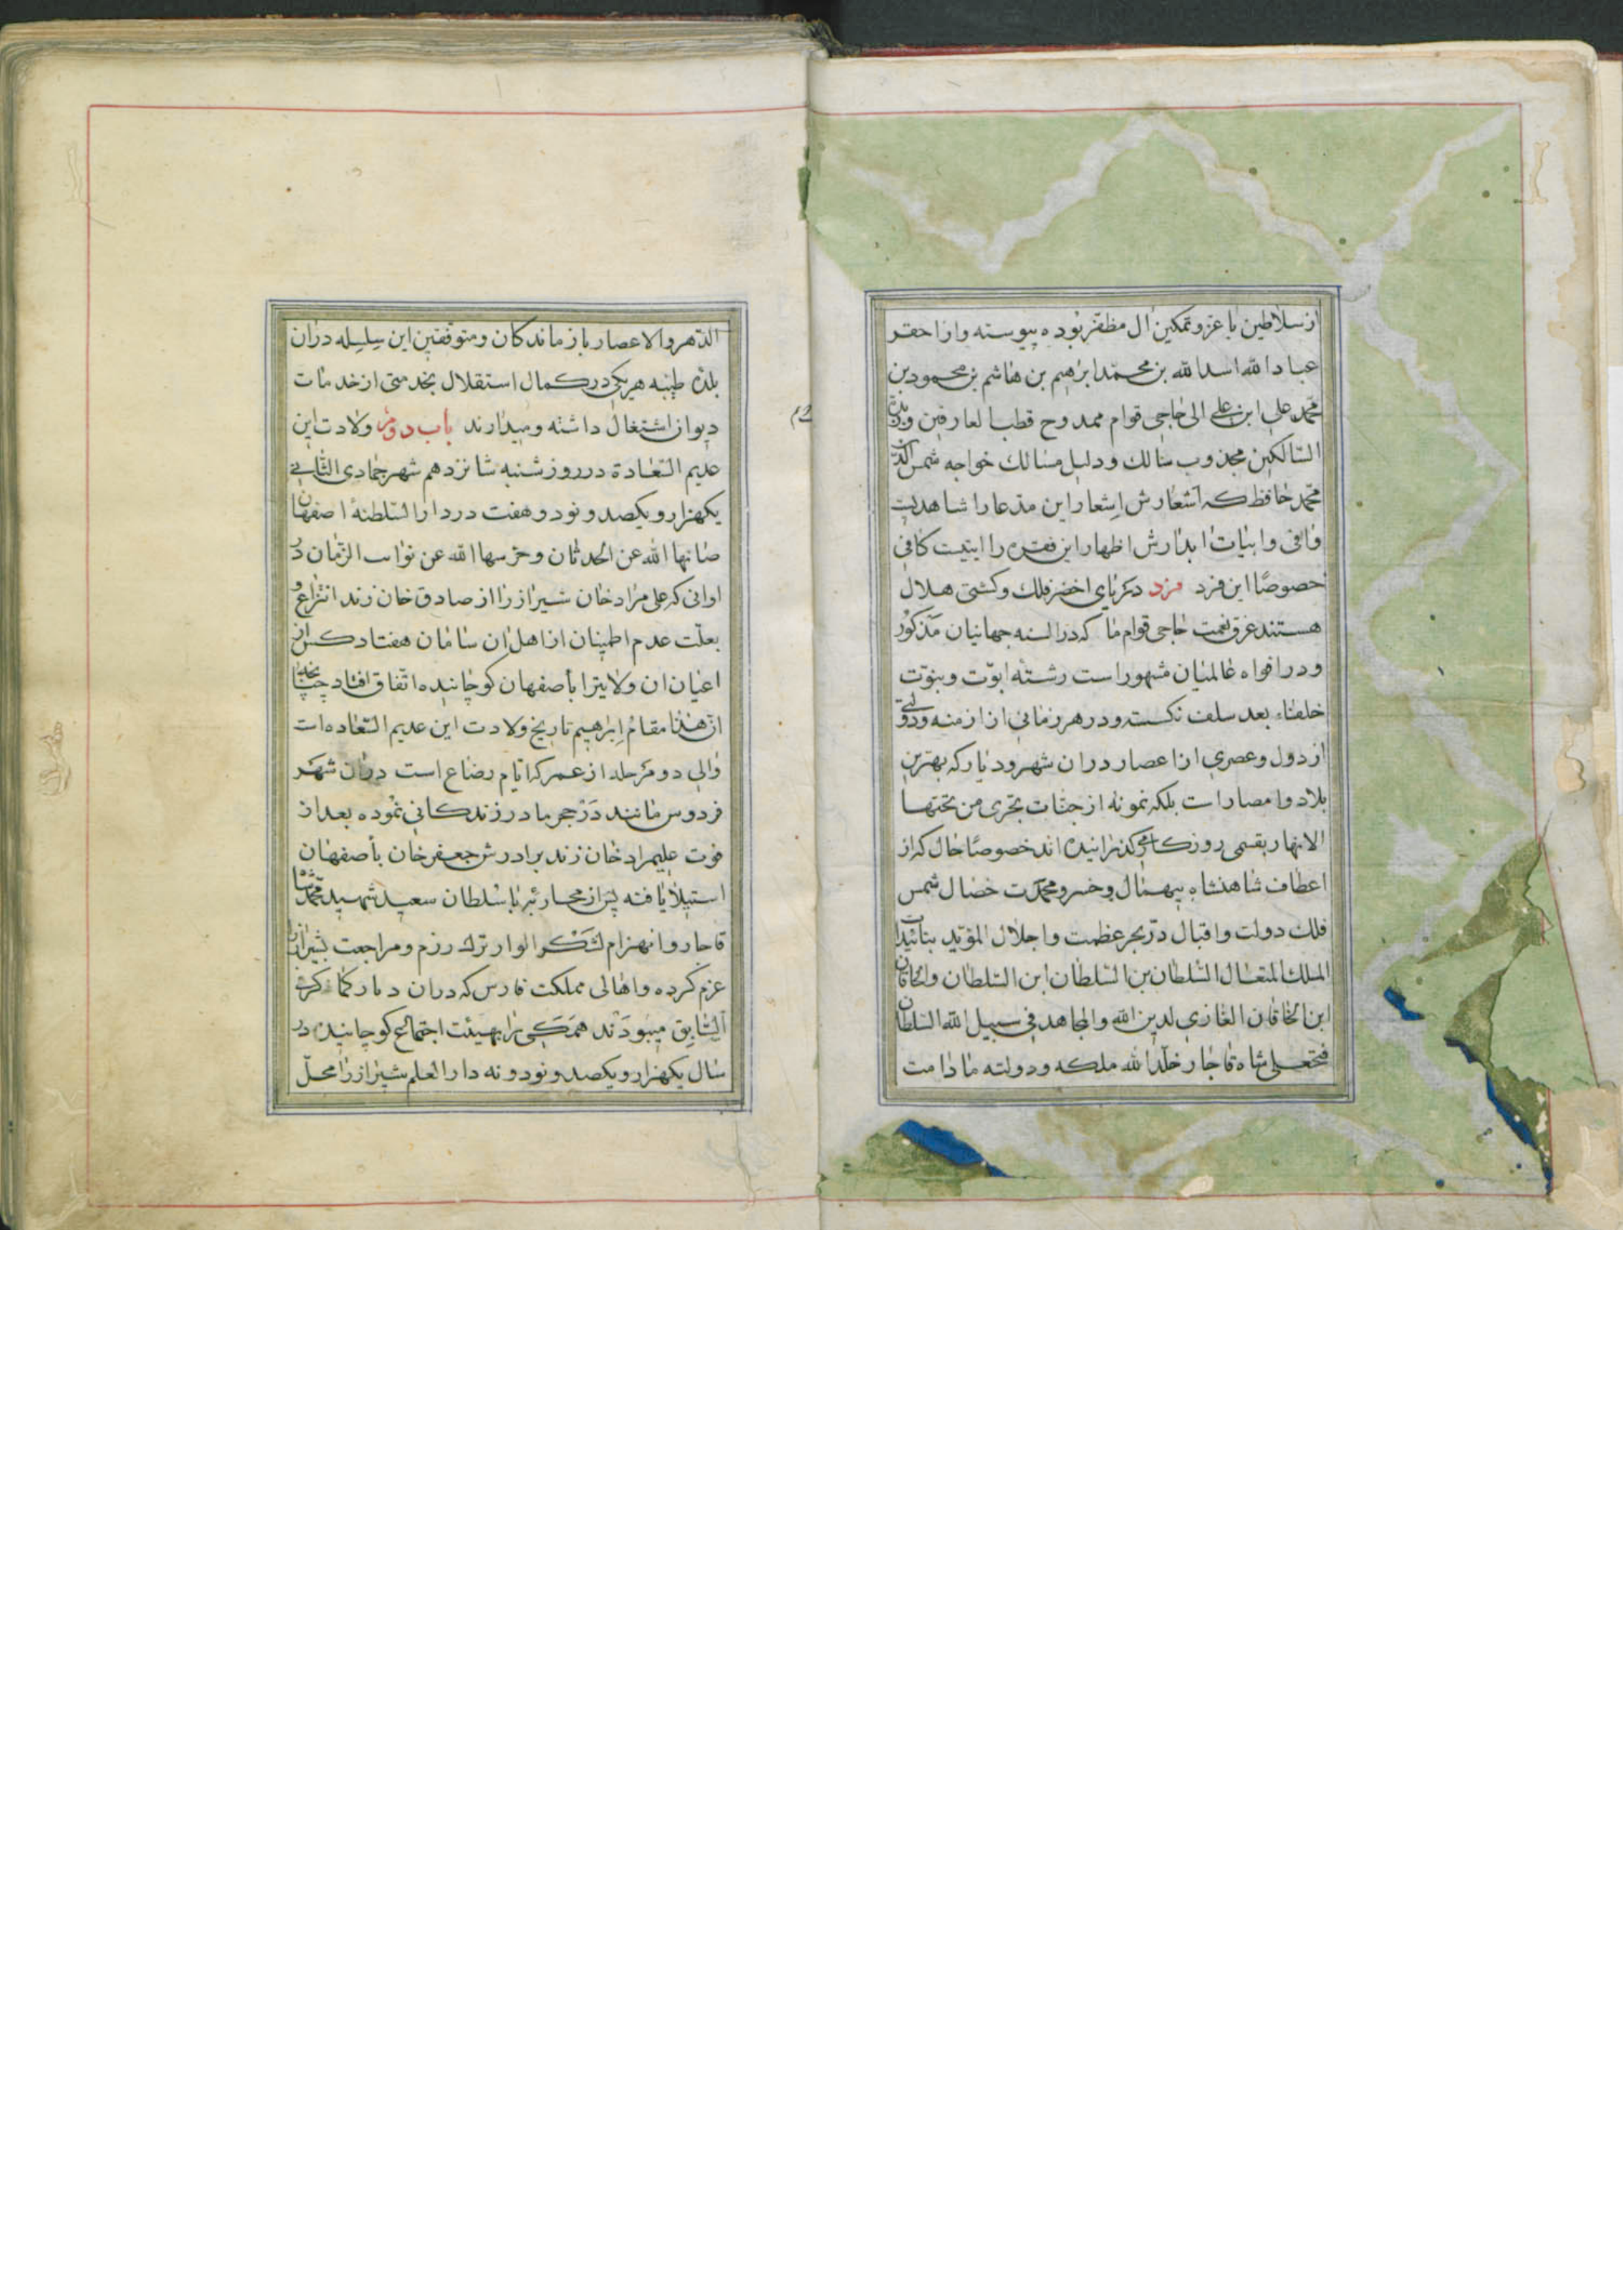 از سلاطین با عز و تمکین ال مظفر بوده پیوسته و از احقر
عباد الله اسد الله بن محمد ابرهیم بن هاشم بن محمود بن
محمد علی ابن علی الی حاجی قوام ممدوح قطب العارفین و زبدة
السالکین مجذوب سالک و دلیل مسالک خواجه شمس الدین
محمد حافظ که اشعارش اشعار این مدعا را شاهدیست
وافی و ابیات ابدارش اظهار این فقره را ابتیست کافی
خصوصا این فرد فرد دریای اخضر فلک و کشتی هلال
هستند غرق نعمت حاجی قوام ما که در السنه جهانیان مذکور
و در افواه عالمیان مشهور است رشته ابوت و بنوت
خلفاء بعد سلف نکسسته و در هر زمانی از ازمنه و دولتی
از دول و عصری از اعصار در ان شهر و دیار که بهترین
بلاد و امصار است بلکه نمونه از جنات تجری من تحتها
الانهار بقسمی روزکار کذرانیده اند خصوصا حال که از
اعطاف شاهنشاه بیهمال و خسرو محمدت خصال شمس
فلک دولت و اقبال در بحر عظمت و اجلال المؤید بتائیدات
الملک المتعال السلطان بن السلطان ابن السلطان والخاقان
ابن الخاقان الغازی لدین الله والمجاهد فی سبیل الله السلطان
فتحعلی شاه قاجار خلد الله ملکه و دولته ما دامت
الدهر والاعصار بازماندکان و متوقفین این سلسله در ان
بلده طیبه هر یکی در کمال استقلال بخدمتی از خدمات
دیوان اشتغال داشته و میدارند باب دوم ولادت این
عدیم السعادة در روز شنبه شانزدهم شهر جمادی الثانی
یکهزار و یکصد و نود و هفت در دار السلطنهٔ اصفهان
صانها الله عن الحدثان و حرسها الله عن نوائب الزمان در
اوانی که علی مراد خان شیراز را از صادق خان زند انتزاع و
بعلت عدم اطمینان از اهل ان سامان هفتاد کس از
اعیان ان ولایترا بأصفهان کوچانیده اتفاق افتاد چنانچه
ان هذا مقام ابراهیم تاریخ ولادت این عدیم السعاده است
والی دو مرحله از عمر که ایام رضاع است در ان شهر
فردوس مانند در حجر مادر زندکانی نموده بعد از
فوت علیمراد خان زند برادرش جعفر خان بأصفهان
استیلا یافته پس از محاربه با سلطان سعید شهید محمد شاه
قاجار و انهزام لشکر الوار ترک رزم و مراجعت بشیراز را
عزم کرده و اهالی مملکت فارس که در ان دیار کما ذکر فی
السابق میبودند همکی را بهیئت اجتماع کوچانیده در
سال یکهزار و یکصد و نود و نه دار العلم شیراز را محل